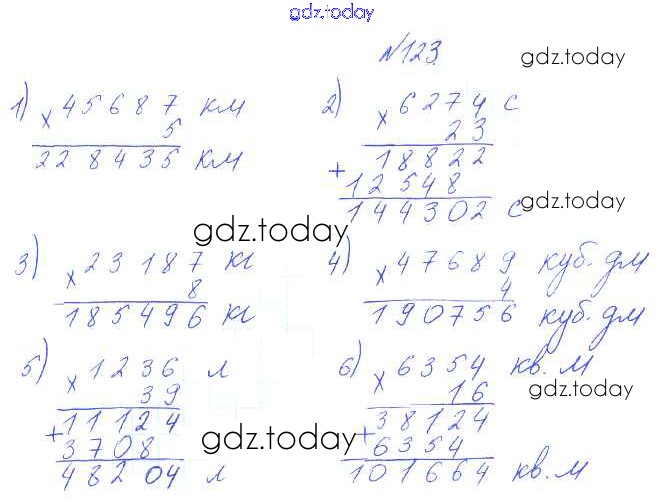 gdz.today
№123
gdz.today
1) × 45687 км
5
228435 км
2) × 6274 с
23
18822
+
12548
144302 с
gdz.today
gdz.today
3) × 23187 кг
8
185496 кг
4) × 47689 куб. дм
4
190756 куб. дм
5) × 1236 л
39
11124
+
3708
48204 л
gdz.today
6) × 6354 кв. м
16
gdz.today
38124
+
6354
101664 кв. м